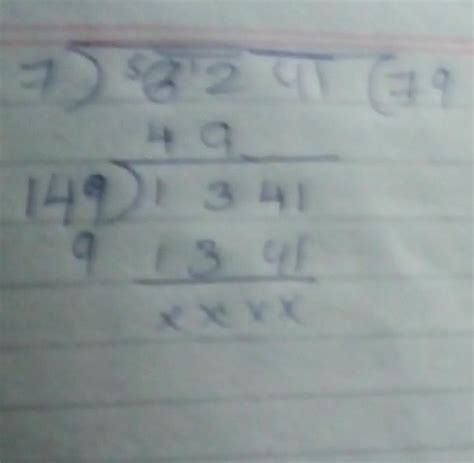 7) 6241 (79
49
149) 1341
9 1341
xxxx